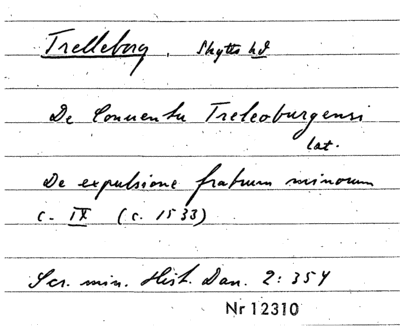 Trelleborg, Skytts hd
De Conventu Treleoburgensi
lat.
De expulsione fratrum minorum
c. IX (c. 1533)
Scr. min. Hist. Dan. 2: 354
Nr 12310